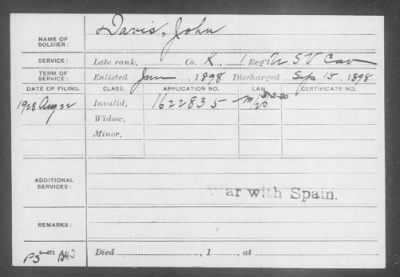 NAME OF SOLDIER: Davis, John
SERVICE: Late rank, Co. K, 1 Reg't U S V Cav
TERM OF SERVICE: Enlisted Jun, 1898 Discharged Sep 15, 1898
DATE OF FILING. CLASS. APPLICATION NO. LAW. CERTIFICATE NO.
1928 Aug 22 Invalid, 1622835
Widow,
Minor,
ADDITIONAL SERVICES: War with Spain.
REMARKS:
Died , 1 , at